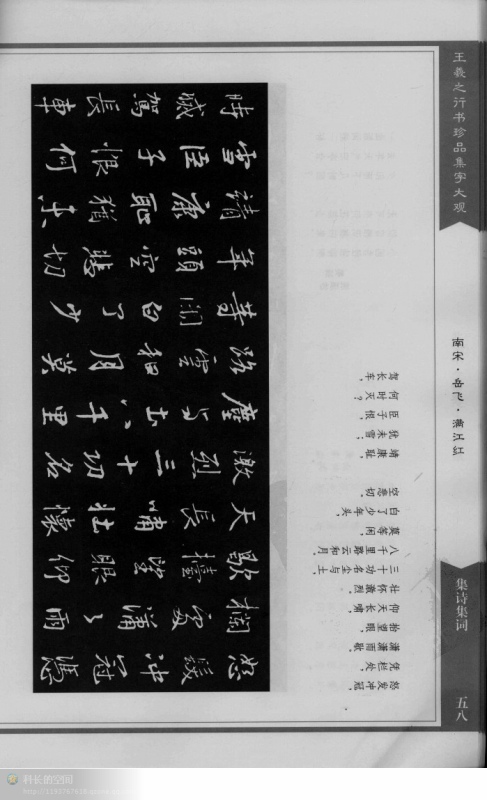 王羲之行书珍品集字大观
南宋·岳飞·满江红
集诗集词
五八
怒髮冲冠憑
欄處瀟瀟雨
歇擡望眼仰
天長嘯壯懷
激烈三十功名
塵與土八千里
路雲和月莫
等閒白了少
年頭空悲切
靖康恥猶未
雪臣子恨何
時滅駕長車
怒发冲冠，
凭栏处，
潇潇雨歇。
抬望眼，
仰天长啸，
壮怀激烈。
三十功名尘与土，
八千里路云和月。
莫等闲，
白了少年头，
空悲切。
靖康耻，
犹未雪；
臣子恨，
何时灭？
驾长车，
科长的空间